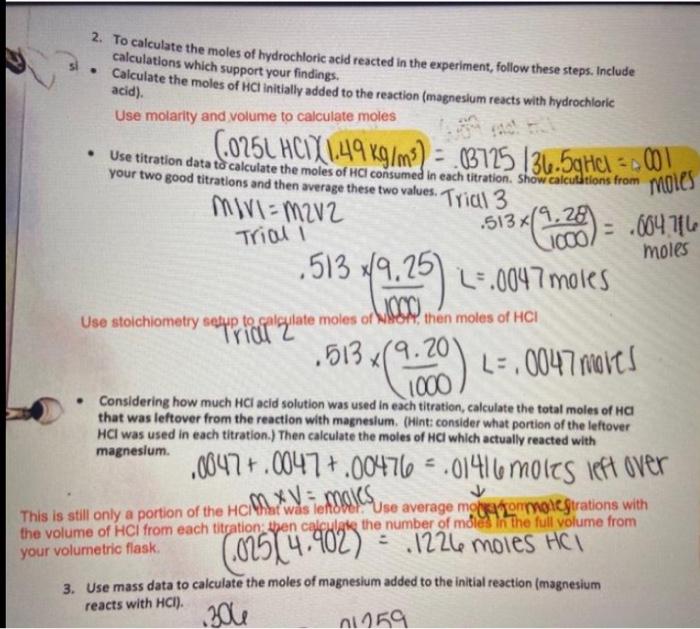 2. To calculate the moles of hydrochloric acid reacted in the experiment, follow these steps. Include
calculations which support your findings.
• Calculate the moles of HCl initially added to the reaction (magnesium reacts with hydrochloric
acid).
Use molarity and volume to calculate moles
(.025L HCl)(1.49 kg/m³) = .03725 /36.5g HCl = .001
moles
• Use titration data to calculate the moles of HCl consumed in each titration. Show calculations from
your two good titrations and then average these two values.
Trial 3
M1V1=M2V2
.513 x (9.28/1000) = .004716
moles
Trial 1
.513 x (9.25/1000) L = .0047 moles
Use stoichiometry setup to calculate moles of NaOH, then moles of HCl
Trial 2
.513 x (9.20/1000) L = .0047 moles
• Considering how much HCl acid solution was used in each titration, calculate the total moles of HCl
that was leftover from the reaction with magnesium. (Hint: consider what portion of the leftover
HCl was used in each titration.) Then calculate the moles of HCl which actually reacted with
magnesium.
.0047 + .0047 + .00476 = .01416 moles left over
m x V = moles
This is still only a portion of the HCl that was leftover. Use average moles from titrations with
the volume of HCl from each titration; then calculate the number of moles in the full volume from
your volumetric flask.
(.025)(4.902) = .1226 moles HCl
3. Use mass data to calculate the moles of magnesium added to the initial reaction (magnesium
reacts with HCl).
.306
.01259